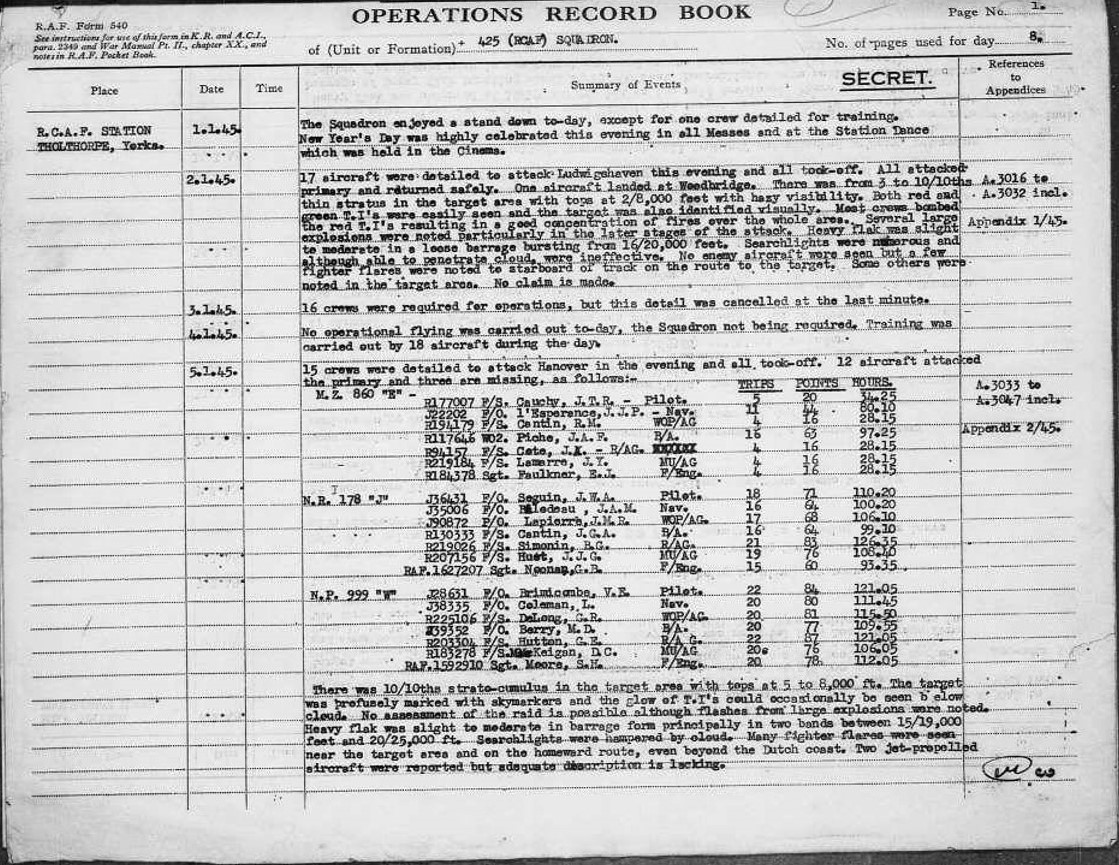 R.A.F. Form 540
See instructions for use of this form in K.R. and A.C.I.,
para. 2349 and War Manual Pt. II., chapter XX., and
notes in R.A.F. Pocket Book.
OPERATIONS RECORD BOOK
Page No. 1.
of (Unit or Formation) 425 (RCAF) SQUADRON.
No. of pages used for day 8.
Place Date Time Summary of Events SECRET. References to Appendices
R.C.A.F. STATION
THOLTHORPE, Yorks.
1.1.45. The Squadron enjoyed a stand down to-day, except for one crew detailed for training.
New Year's Day was highly celebrated this evening in all Messes and at the Station Dance
which was held in the Cinema.
2.1.45. 17 aircraft were detailed to attack Ludwigshaven this evening and all took-off. All attacked
primary and returned safely. One aircraft landed at Woodbridge. There was from 3 to 10/10ths A.3016 to
thin stratus in the target area with tops at 2/8,000 feet with hazy visibility. Both red and A.3032 incl.
green T.I's were easily seen and the target was also identified visually. Most crews bombed
the red T.I's resulting in a good concentration of fires over the whole area. Several large Appendix 1/45.
explosions were noted particularly in the later stages of the attack. Heavy flak was slight
to moderate in a loose barrage bursting from 16/20,000 feet. Searchlights were numerous and
although able to penetrate cloud, were ineffective. No enemy aircraft were seen but a few
fighter flares were noted to starboard of track on the route to the target. Some others were
noted in the target area. No claim is made.
3.1.45. 16 crews were required for operations, but this detail was cancelled at the last minute.
4.1.45. No operational flying was carried out to-day, the Squadron not being required. Training was
carried out by 18 aircraft during the day.
5.1.45. 15 crews were detailed to attack Hanover in the evening and all took-off. 12 aircraft attacked
the primary and three are missing, as follows:- TRIPS POINTS HOURS. A.3033 to
M.Z. 860 "E" - A.3047 incl.
R177007 F/S. Cauchy, J.T.R. - Pilot. 5 20 34.25
J22202 F/O. l'Esperance, J.J.P. - Nav. 11 44 80.10
R194179 F/S. Cantin, R.M. WOP/AG 4 16 28.15
R117646 WO2. Piche, J.A.F. B/A. 16 63 97.25 Appendix 2/45.
R94157 F/S. Cote, J. - R/AG. 4 16 28.15
R219184 F/S. Lamarre, J.Y. MU/AG 4 16 28.15
R184378 Sgt. Faulkner, E.J. F/Eng. 4 16 28.15
N.R. 178 "J" J36431 F/O. Seguin, J.W.A. Pilot. 18 71 110.20
J35006 F/O. Biledeau, J.A.M. Nav. 16 64 100.20
J90872 P/O. Lapierre, J.M.R. WOP/AG. 17 68 106.10
R130333 F/S. Cantin, J.G.A. B/A. 16 64 99.10
R219026 F/S. Simonin, B.G. R/AG 21 83 126.35
R207156 F/S. Huet, J.J.G. MU/AG 19 76 108.40
RAF.1627207 Sgt. Noonan, G.B. F/Eng. 15 60 93.35
N.P. 999 "W" J28631 F/O. Brimicombe, V.E. Pilot. 22 84 121.05
J38335 F/O. Coleman, L. Nav. 20 80 111.45
R225106 F/S. DeLong, G.R. WOP/AG. 20 81 115.50
J39352 F/O. Berry, M.D. B/A. 20 77 109.55
R203304 F/S. Hutton, G.E. R/A G. 22 87 121.05
R183278 F/S. MacKeigan, D.C. MU/AG 20. 76 106.05
RAF.1592910 Sgt. Moore, S.H. F/Eng. 20 78 112.05
There was 10/10ths strato-cumulus in the target area with tops at 5 to 8,000 ft. The target
was profusely marked with skymarkers and the glow of T.I's could occasionally be seen b elow
cloud. No assessment of the raid is possible although flashes from large explosions were noted.
Heavy flak was slight to moderate in barrage form principally in two bands between 15/19,000
feet and 20/25,000 ft. Searchlights were hampered by cloud. Many fighter flares were seen
near the target area and on the homeward route, even beyond the Dutch coast. Two jet-propelled
aircraft were reported but adequate description is lacking.